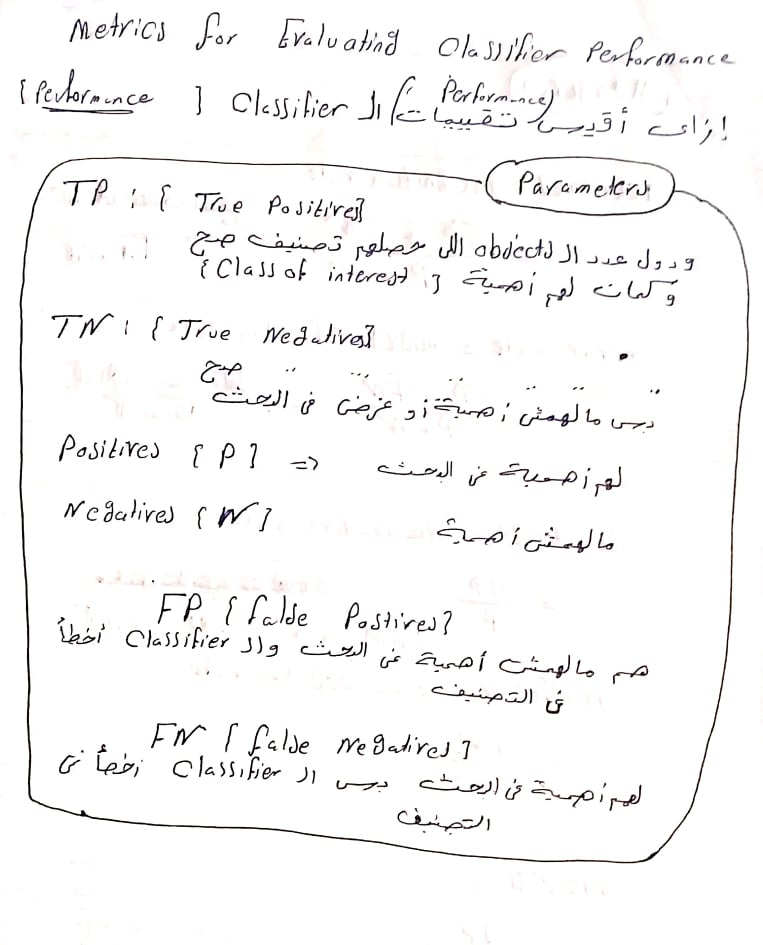 Metrics for Evaluating Classifier Performance
إزاى أقيس تقييمات (Performance) الـ Classifier [Performance]
Parameters
TP : { True Positives}
ودول عدد الـ objects اللى حصلهم تصنيف صح
وكمان لهم أهمية {Class of interest}
TN : { True Negatives}
〃 〃 〃 〃 〃 صح
بس مالهمش أهمية أو غرض فى البحث
Positives { P } => لهم أهمية فى البحث
Negatives { N } مالهمش أهمية
FP { false Postives}
هم مالهمش أهمية فى البحث والـ Classifier أخطأ
فى التصنيف
FN { false Negatives }
لهم أهمية فى البحث بس الـ Classifier أخطأ فى
التصنيف